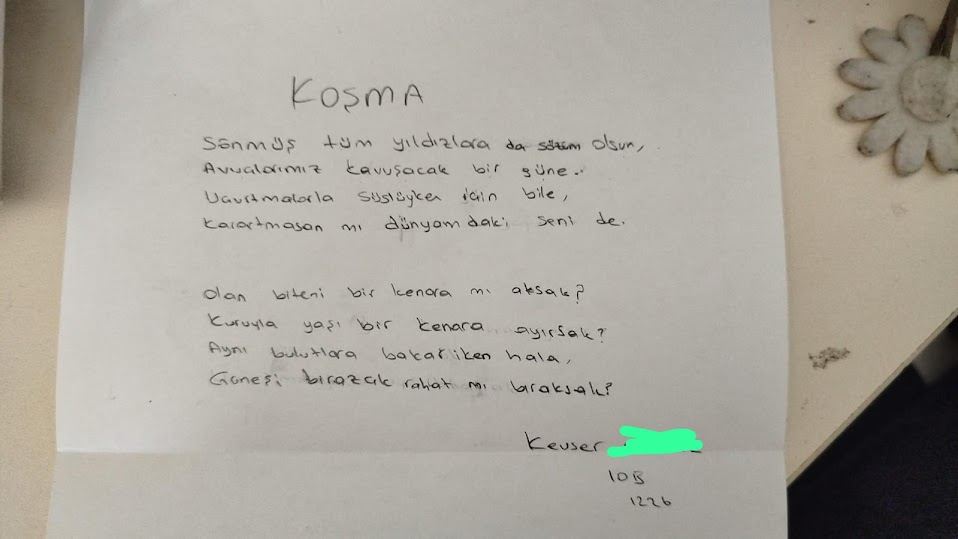 KOŞMA
Sönmüş tüm yıldızlara da sözüm olsun,
Avuçlarımız kavuşacak bir güne..
Uçurtmalarla süslüyken için bile,
Karartmasan mı dünyamdaki seni de.
Olan biteni bir kenara mı aksak?
Kuruyla yaşı bir kenara ayırsak?
Aynı bulutlara bakarlıken hala,
Güneşi birazcık rahat mı bıraksak?
Kevser
10B
1226